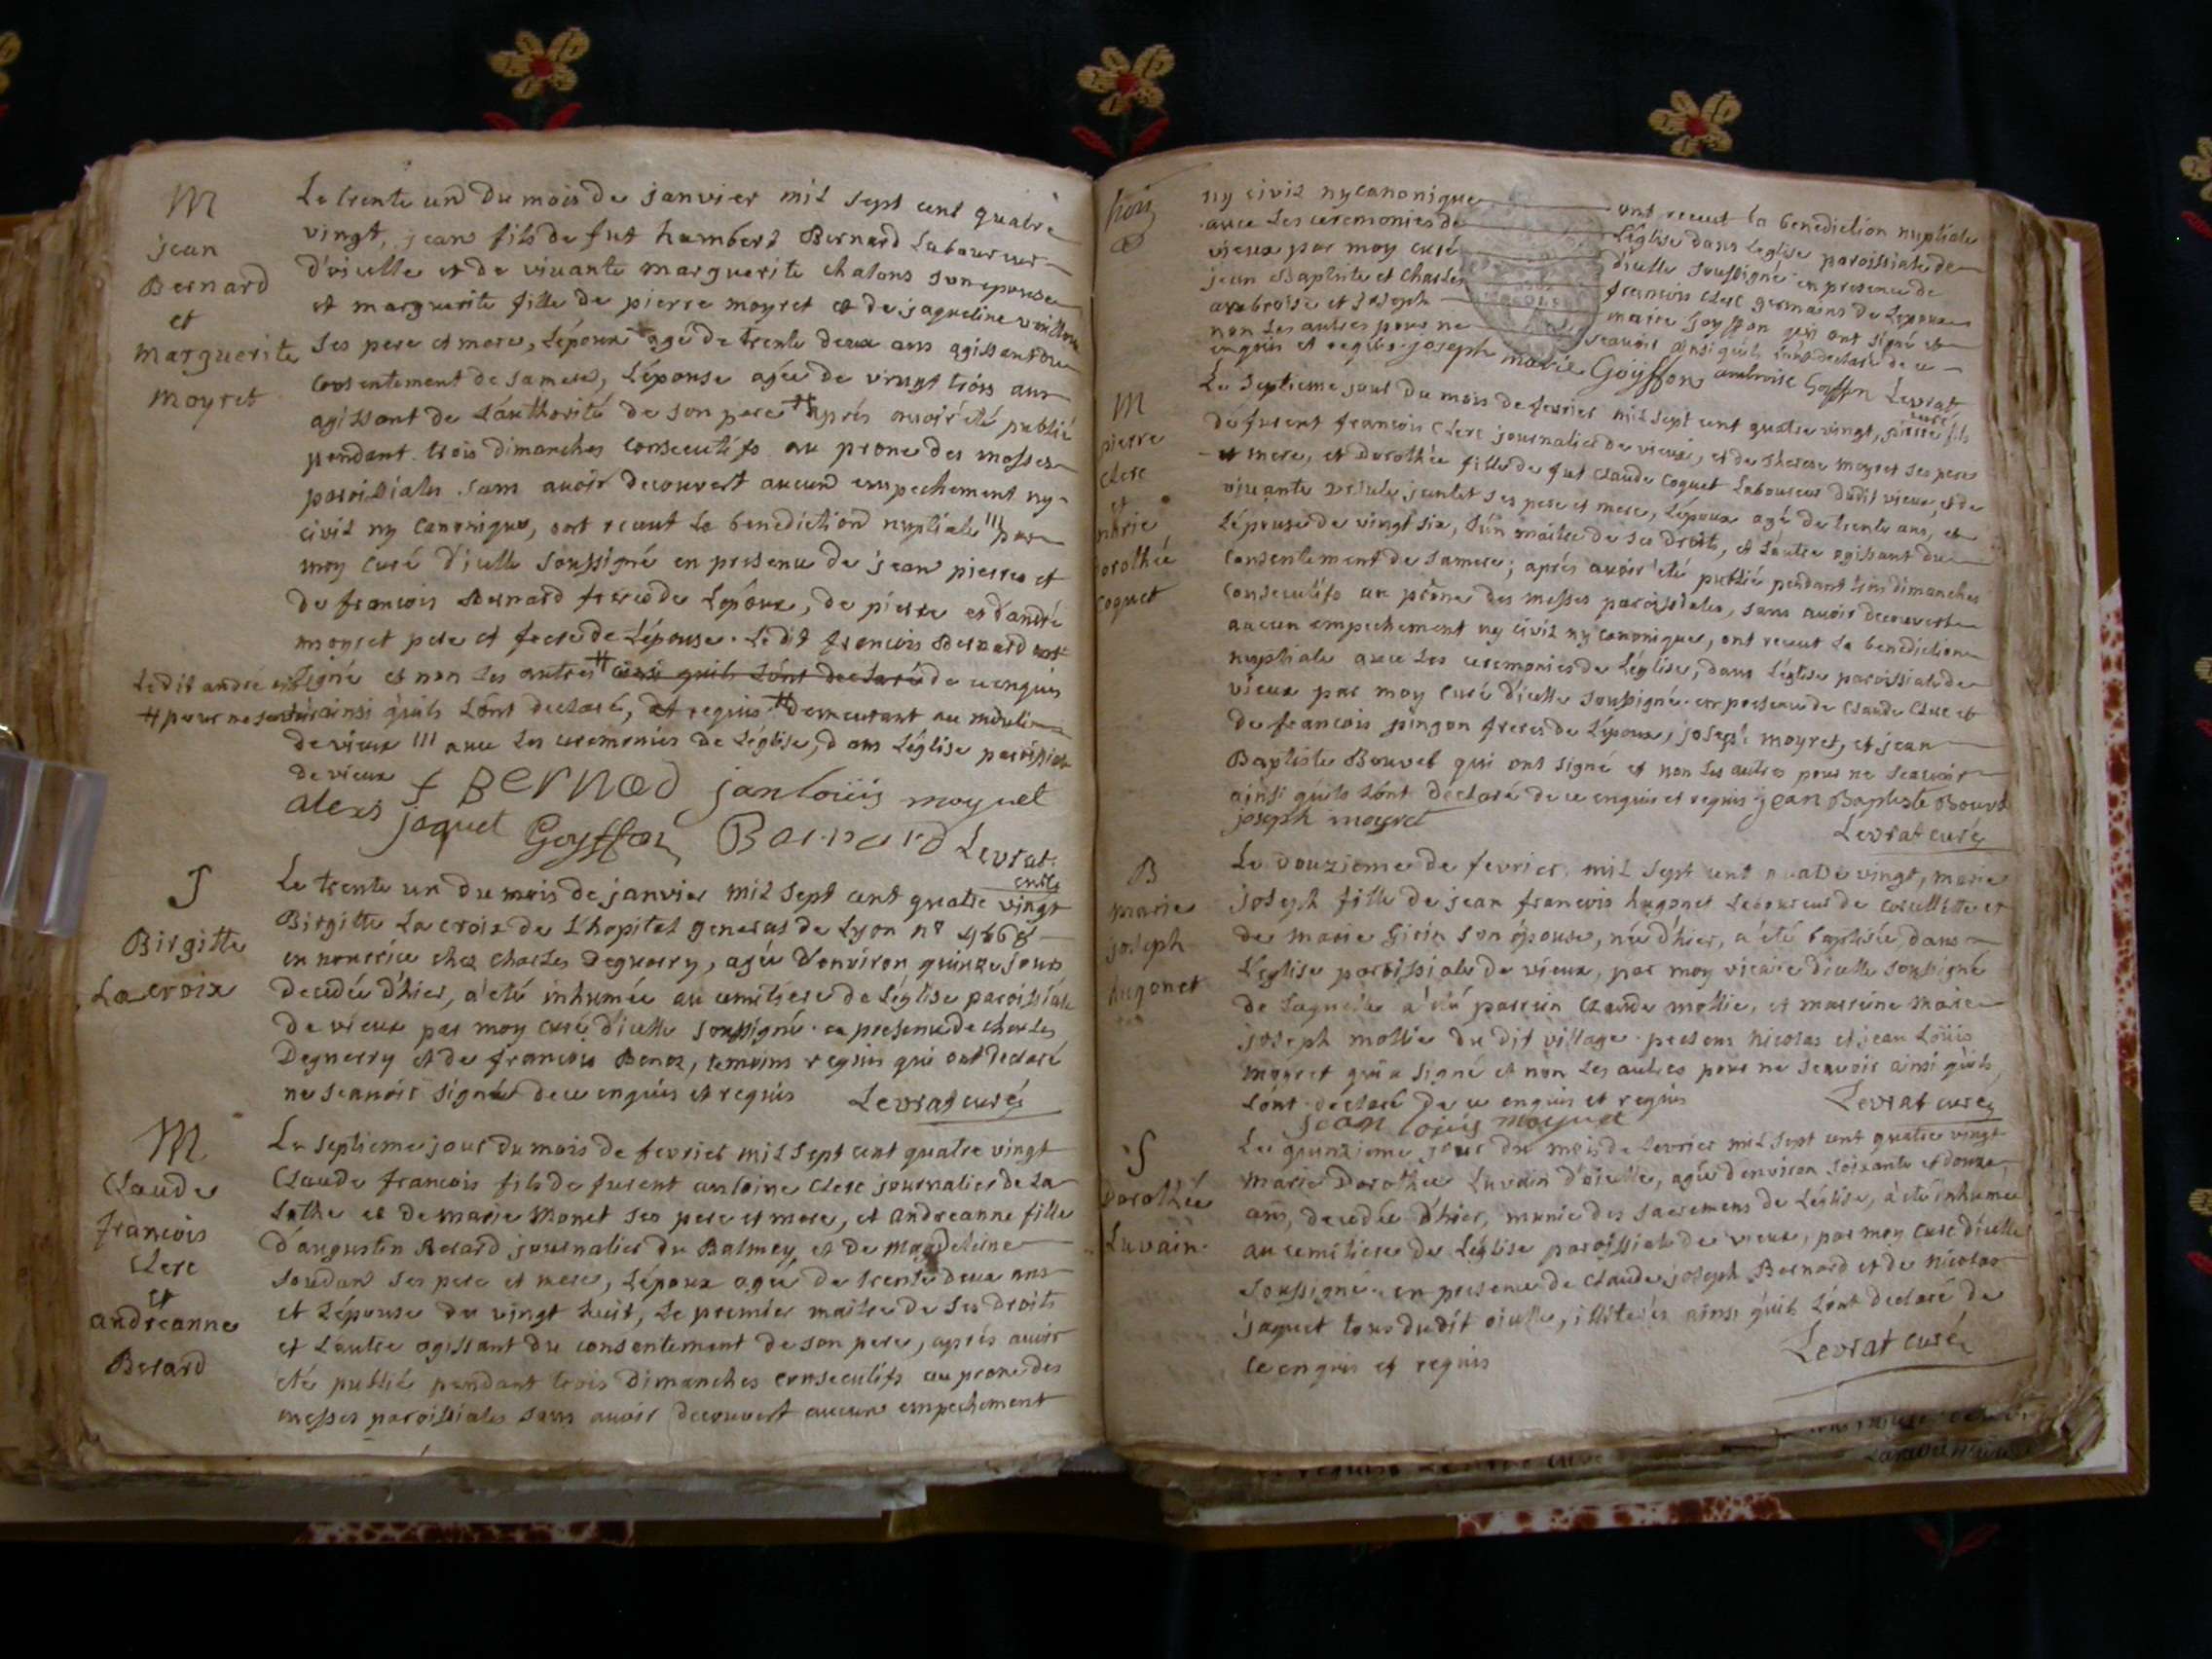 M
jean
Bernard
et
Marguerite
Moyret
Le trente un du mois de janvier mil sept cent quatre
vingt, jean fils de fut humbert Bernard Laboureur
d'oicelle et de vivante marguerite chatons son epouse
et marguerite fille de pierre moyret et de jaqueline
ses pere et mere, L'époux agé de trente deux ans agissant du
consentement de sa mere, L'épouse agée de vingt trois ans
agissant de L'authorité de son pere # aprés avoir été publié
pendant trois dimanches consecutifs au prone des messes
paroissiales sans avoir decouvert aucun empechement ny
civil ny canonique, ont receut La benediction nuptiale /// par
moy curé d'icelle soussigné en presence de jean pierre et
de francois Bernard freres de L'époux, de pierre et d'andré
moyret pere et frere de L'épouse. Ledit francois Bernard
Ledit andré
signé et non Les autres # ainsi quils Lónt declaré de ce enquis
# pour ne scavoir ainsi quils Lónt declaré, et requis # demeurant au moulin
de vieux /// avec Les ceremonies de L'église, dans L'église paroissiale
de vieux
f BERNAD janloüis moyret
alexis jaquet Goyffon Barnard Levrat
curé
S
Birgitte
Lacroix
Le trente un du mois de janvier mil sept cent quatre vingt
Birgitte Lacroix de L'hopital general de Lyon n°
en nourrice chez charles Deguerry, agée d'environ quinze jours
decedée d'hier, a été inhumée au cemitiere de L'église paroissiale
de vieux par moy curé d'icelle soussigné en presence de charles
Deguerry et de francois Benoz, temoins requis qui ont declaré
ne scavoir signer de ce enquis et requis Levrat curé
M
Claude
francois
Clerc
et
andreanne
Berard
Le septieme jour du mois de fevrier mil sept cent quatre vingt
Claude francois fils de furent antoine Clerc journalier de La
Lathe et de marie Monet ses pere et mere, et andreanne fille
d'augustin Berard journalier du Balmey et de magdeleine
soudan ses pere et mere, L'époux agé de trente deux ans
et L'épouse de vingt huit, Le premier maitre de ses droits
et L'autre agissant du consentement de son pere, aprés avoir
été publié pendant trois dimanches consecutifs au prone des
messes paroissiales sans avoir decouvert aucun empechement
ny civil ny canonique ont receut La benediction nuptiale
avec Les ceremonies de L'église dans L'eglise paroissiale de
vieux par moy curé d'icelle soussigné en presence de
jean Baptiste et Charles francois clerc germains de L'époux
ambroise et joseph marie Goyffon qui ont signé et
non Les autres pour ne scavoir ainsi quils Lónt declaré de ce
enquis et requis. joseph marie Goyffon ambroise Goyffon Levrat
curé
M
pierre
Clerc
et
marie
dorothée
Coquet
Le Septieme jour du mois de fevrier mil sept cent quatre vingt, pierre fils
de furent francois Clerc journalier de vieux, et de therese moyret ses pere
et mere, et Dorothée fille de fut Claude Coquet Laboureur dudit vieux, et de
vivante ursule juntet ses pere et mere, L'époux agé de trente ans, et
L'épouse de vingt six, L'un maitre de ses droits, et L'autre agissant du
consentement de sa mere; aprés avoir été publié pendant trois dimanches
consecutifs au prône des messes paroissiales, sans avoir decouvert
aucun empechement ny civil ny canonique, ont receut La benediction
nuptiale avec Les ceremonies de L'église, dans L'église paroissiale de
vieux par moy curé d'icelle soussigné en presence de Claude Clerc et
de francois pingon freres de L'époux, joseph moyret, et jean
Baptiste Bouvet qui ont signé et non Les autres pour ne scavoir
ainsi quils Lónt declaré de ce enquis et requis jean Baptiste Bouvet
joseph moyret Levrat curé
B
marie
joseph
hugonet
Le douzieme de fevrier mil sept cent quatre vingt, marie
joseph fille de jean francois hugonet Laboureur de et
de marie Girin son épouse, née d'hier, a été baptisée dans
L'église paroissiale de vieux, par moy vicaire d'icelle soussigné
de Laquelle a été parrein Claude mollie, et marreine marie
joseph mollie du dit village. presens nicolas et jean Loüis
moyret qui a signé et non Les autres pour ne scavoir ainsi quils
Lónt declaré de ce enquis et requis Levrat curé
jean loüis moyret
S
Dorothée
Luvain
Le quinzieme jour du mois de fevrier mil sept cent quatre vingt
marie Dorothée Luvain d'oicelle, agée d'environ soixante et douze
ans, decedée d'hier, munie des sacremens de L'église, a été inhumée
au cemitiere de L'église paroissiale de vieux, par moy curé d'icelle
soussigné. en presence de Claude joseph Bernard et de nicolas
jaquet tous dudit oicelle, illiterés ainsi quils Lónt declaré de
ce enquis et requis Levrat curé